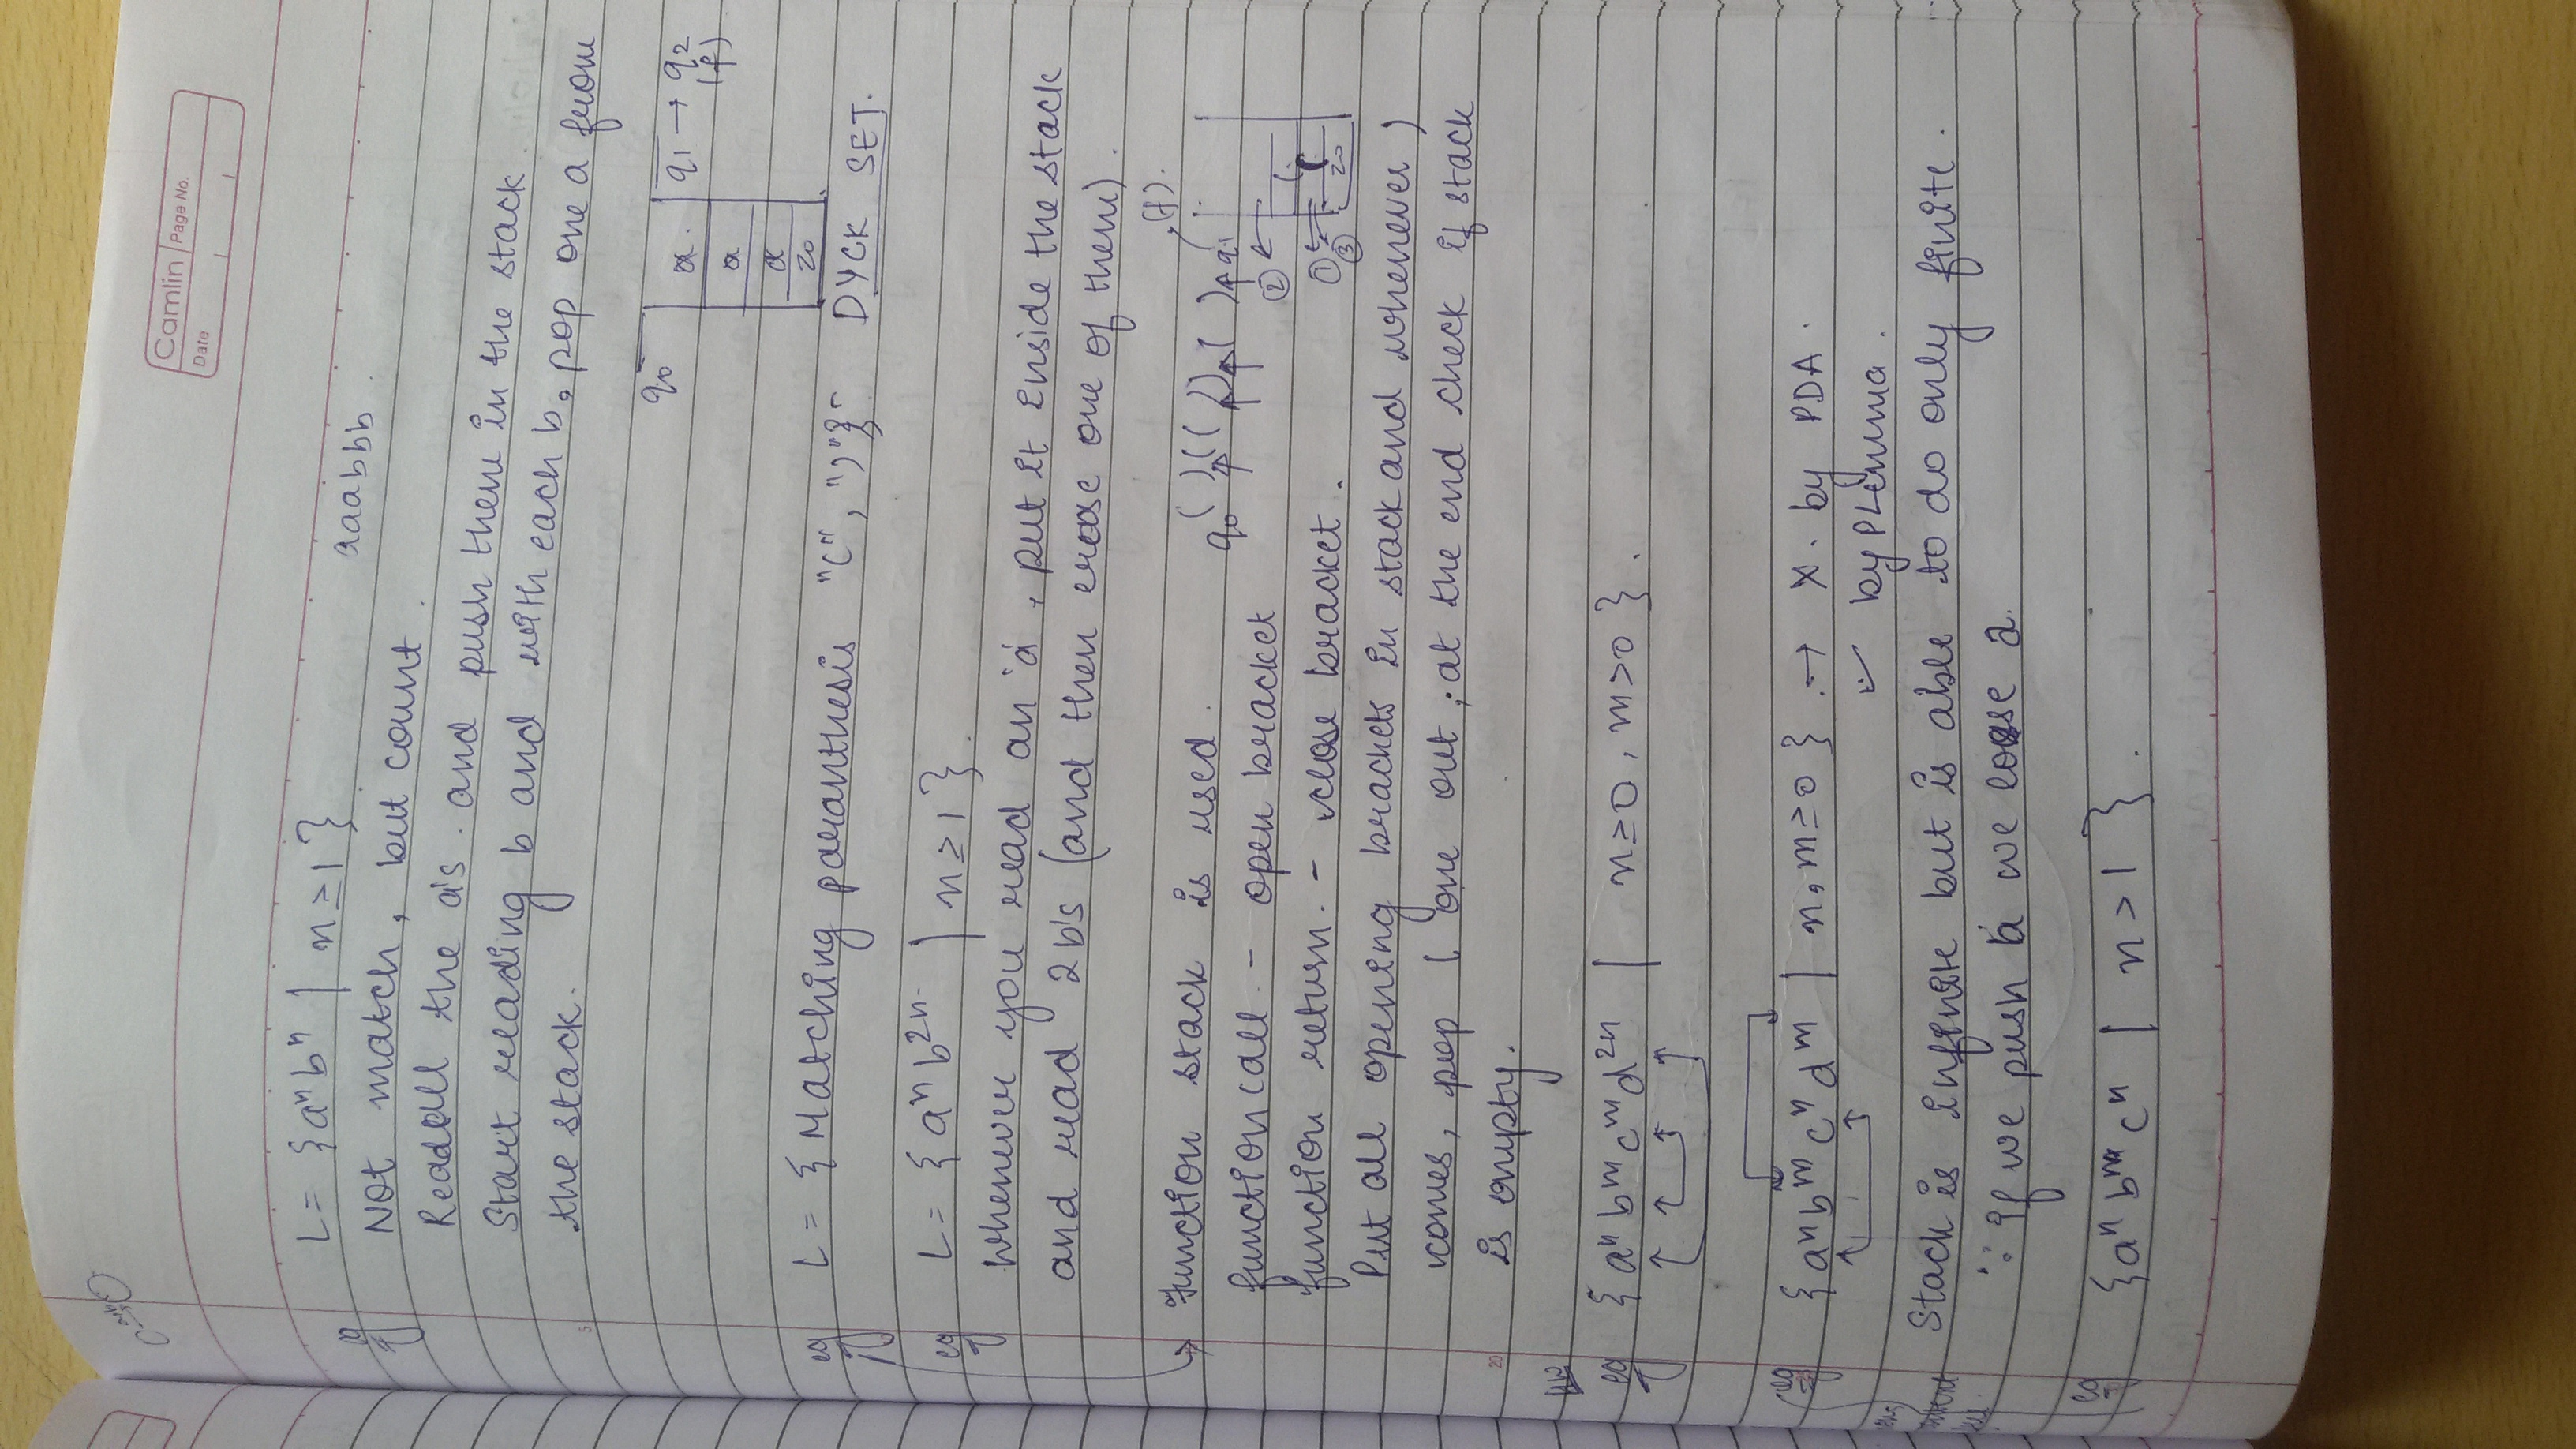 a,b
Camlin Page No.
Date
eg L = {aⁿbⁿ | n ≥ 1} aaabbb.
Not match, but count.
Read all the a's. and push them in the stack.
Start reading b and with each b, pop one a from
the stack.
5
q0 a. q1 → q2
(f)
a
a
z0
eg L = {Matching paranthesis "(", ")"} DYCK SET.
eg L = {aⁿb²ⁿ | n ≥ 1}.
Whenever you read an 'a', put it inside the stack
and read 2b's (and then erase one of them).
(f).
Function stack is used. q0 ( ) ( ( ) ) ( ) q1
function call - open bracket ②
function return. - close bracket. ① ③ ( ( z0
Put all opening brackets in stack and whenever )
comes, pop ( one out; at the end check if stack
20 is empty.
HW
eg {aⁿbᵐcᵐd²ⁿ | n ≥ 0, m > 0}.
eg {aⁿbᵐcⁿdᵐ | n, m ≥ 0} → X. by PDA.
✓ by PLemma.
Stack is infinite but is able to do only finite.
∵ if we push b we loose a.
eg {aⁿbⁿcⁿ | n > 1}.